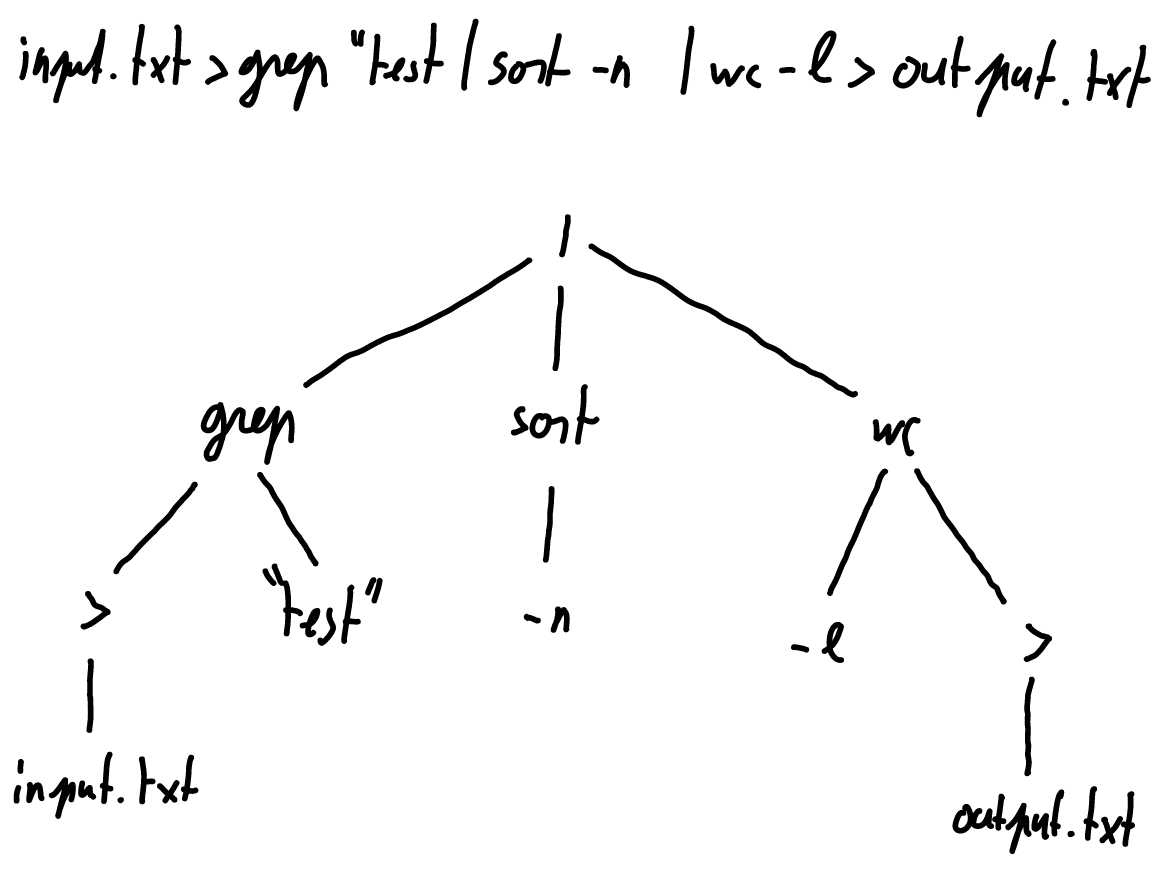 input.txt > grep "test | sort -n | wc -l > output.txt
|
grep sort wc
> "test" -n -l >
input.txt output.txt